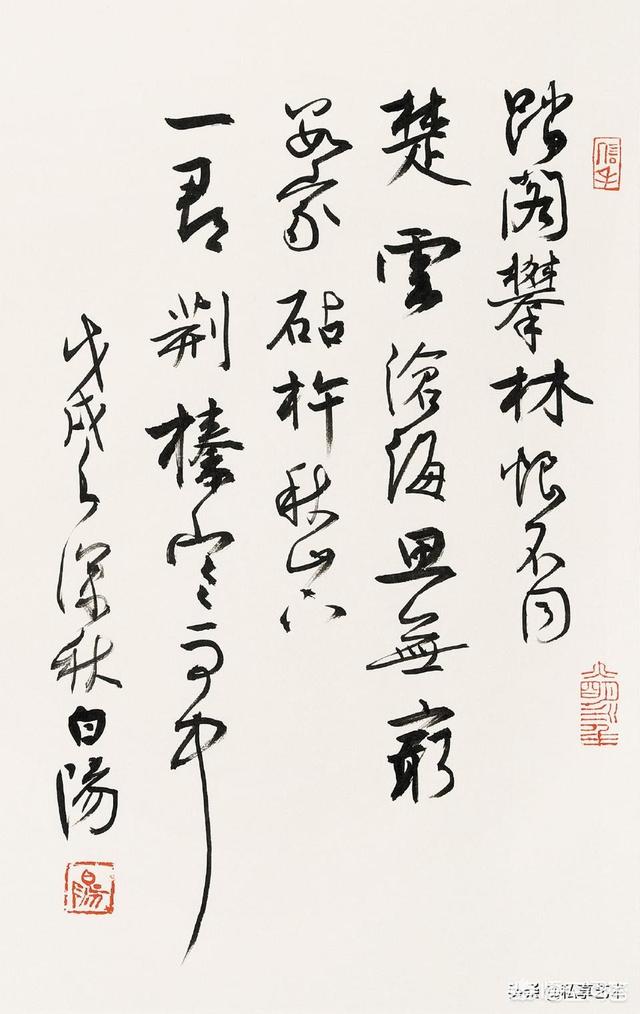 踏閣攀林恨不同
楚雲滄海思無窮
數家砧杵秋山下
一郡荆榛寒雨中
戊戌之深秋白陽
陽
头条 @私享艺术